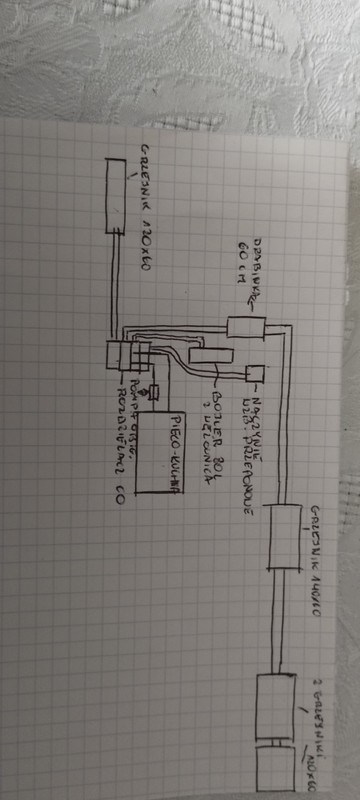 GRZEJNIK 120x60
DRABINKA
60 cm
NACZYNIE
WZB. PRZEPONOWE
BOJLER 80L
Z WĘŻOWNICĄ
PIECO-KUCHNIA
POMPA OBIEG.
ROZDZIELACZ CO
GRZEJNIK 140x60
2 GRZEJNIKI
120x60